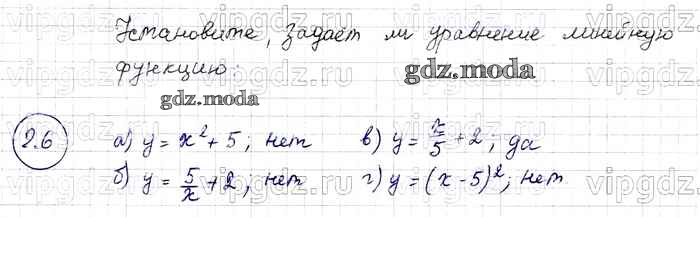 Установите, задаёт ли уравнение линейную
функцию:
gdz.moda
gdz.moda
2.6 а) y = x² + 5; нет в) y = x/5 + 2; да
б) y = 5/x + 2; нет г) y = (x - 5)²; нет
vipgdz.ru